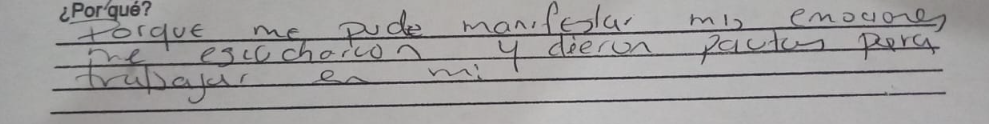 ¿Por qué?
Porque me pude manifestar mis emociones
me escucharon y dieron pautas para
trabajar en mi